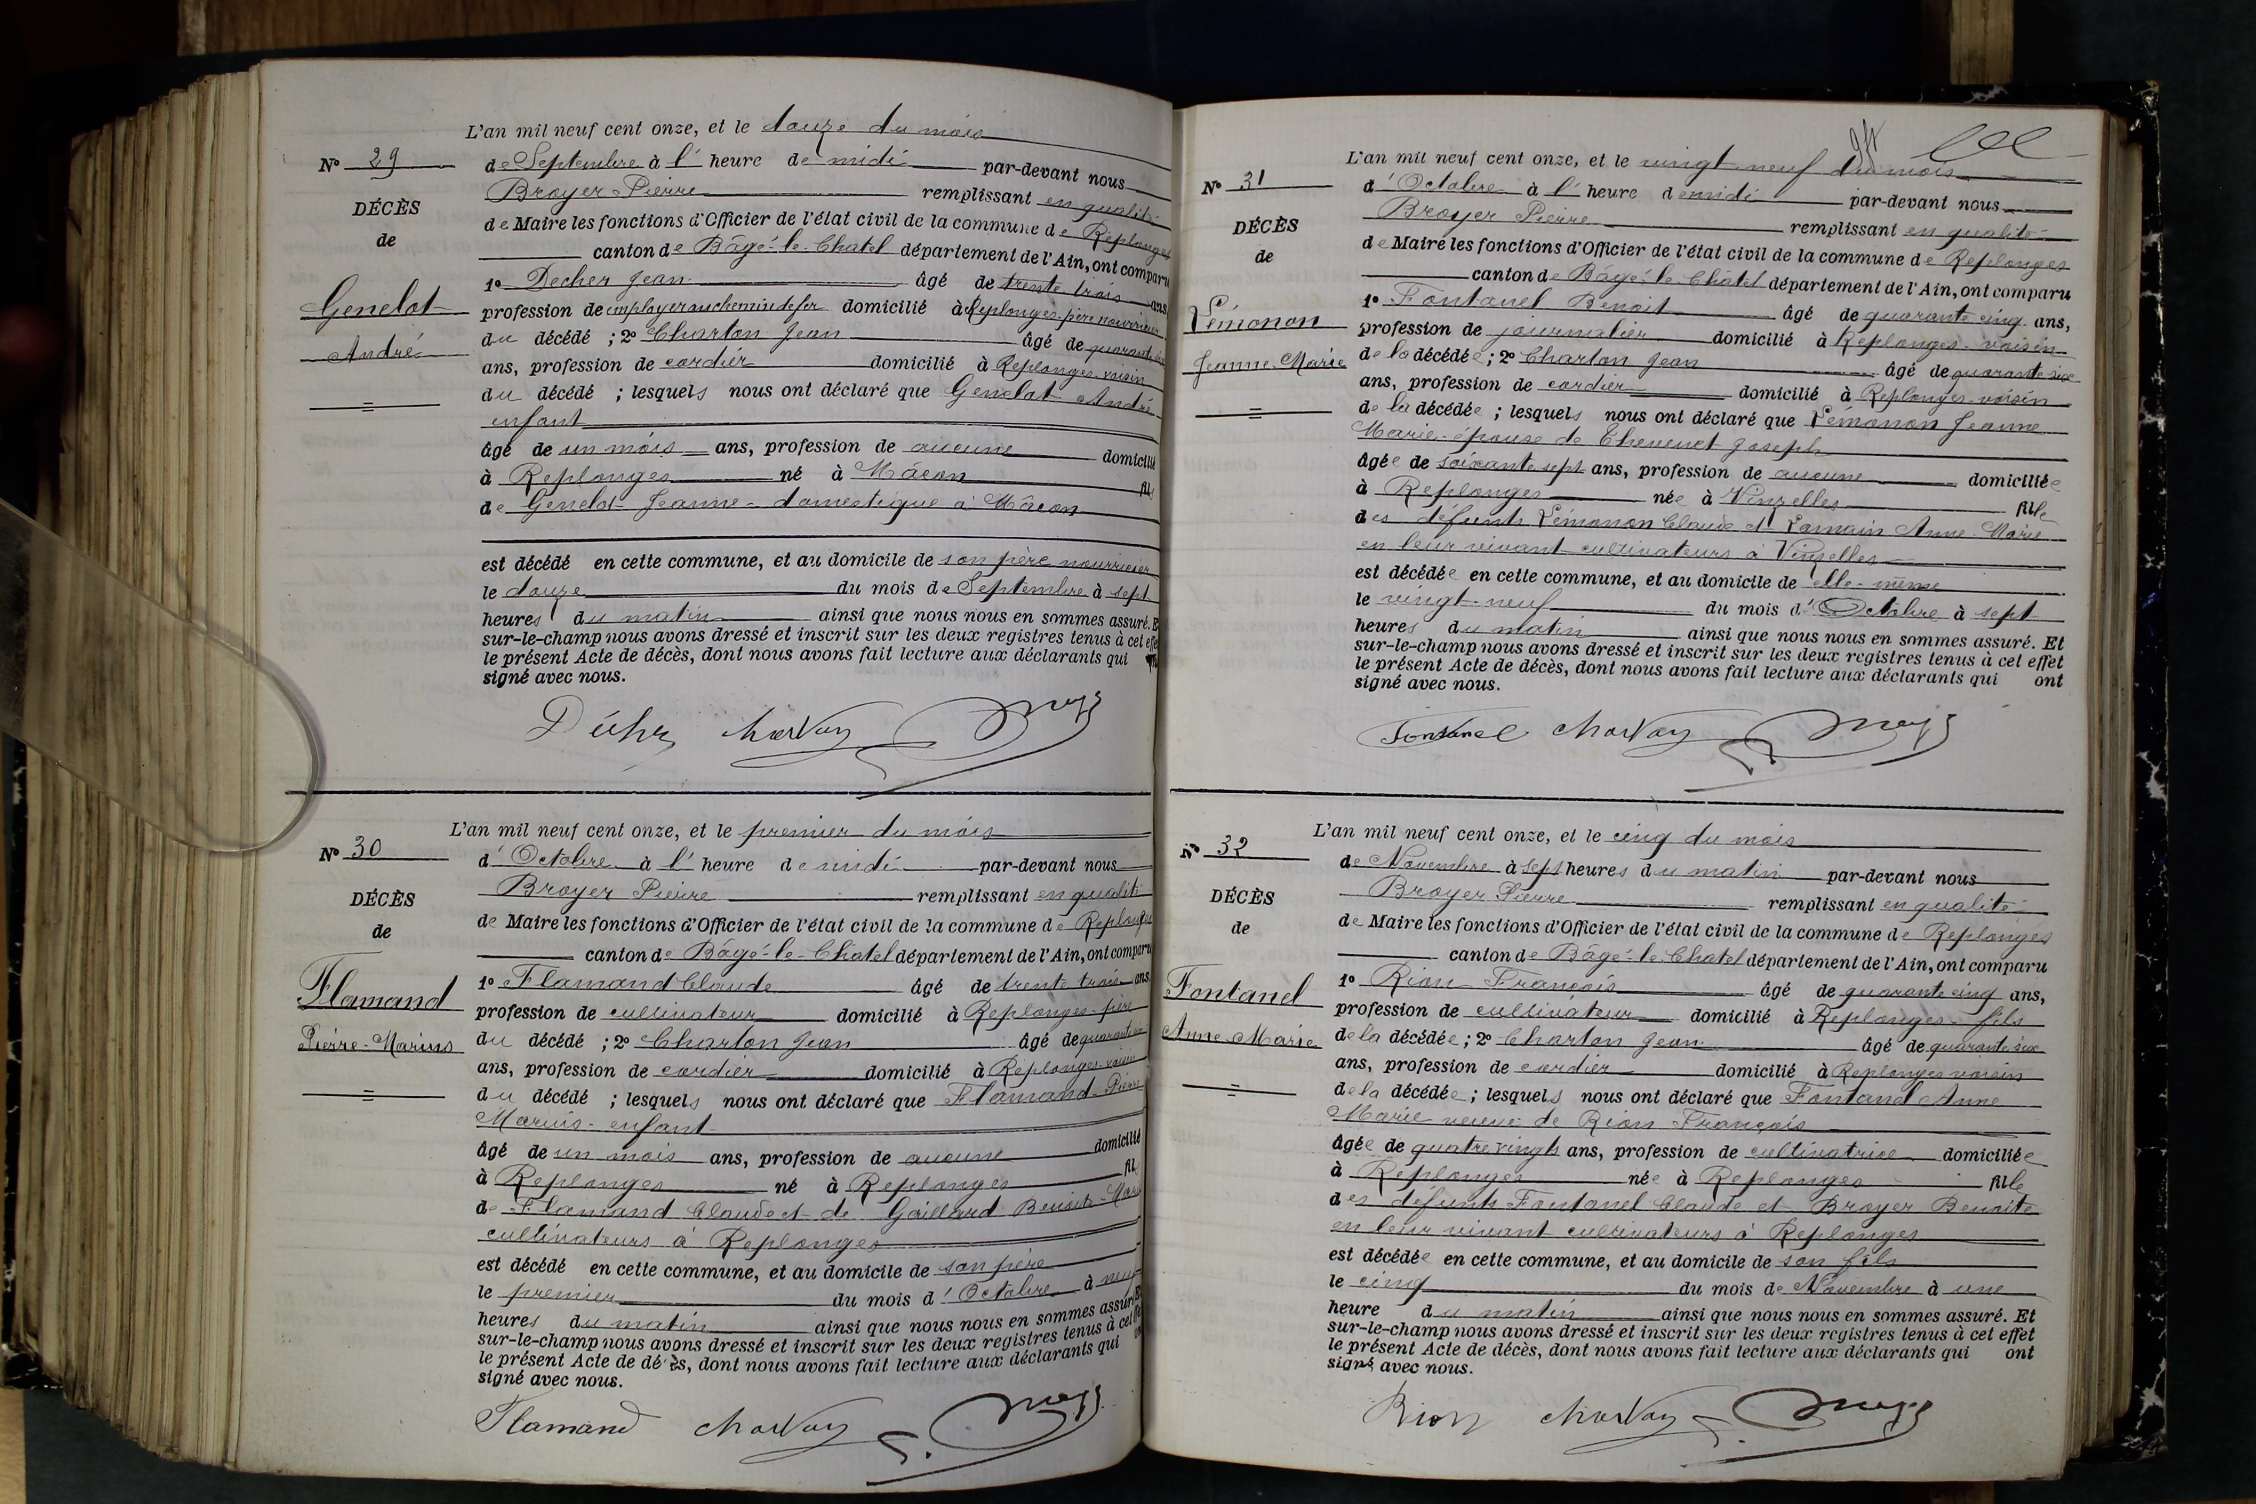 L'an mil neuf cent onze, et le douze du mois
N° 29
de Septembre à l' heure de midi par-devant nous
Broyer Pierre remplissant en qualité
DÉCÈS
de Maire les fonctions d'Officier de l'état civil de la commune de Replonges
de
canton de Bâgé-le-Chatel département de l'Ain, ont comparu
1° Decher Jean âgé de trente trois ans
Genelot
profession de employer au chemin de fer domicilié à Replonges père nourricier
du décédé ; 2° Charton Jean âgé de quarante
André
ans, profession de cordier domicilié à Replonges voisin
du décédé ; lesquels nous ont déclaré que Genelot André
enfant
âgé de un mois ans, profession de aucune domicilié
à Replonges né à Mâcon fils
de Genelot Jeanne - domestique à Mâcon
est décédé en cette commune, et au domicile de son père nourricier
le douze du mois de Septembre à sept
heures du matin ainsi que nous nous en sommes assuré. Et
sur-le-champ nous avons dressé et inscrit sur les deux registres tenus à cet effet
le présent Acte de décès, dont nous avons fait lecture aux déclarants qui
signé avec nous.
Charton
L'an mil neuf cent onze, et le premier du mois
N° 30
d' Octobre à l' heure de midi par-devant nous
Broyer Pierre remplissant en qualité
DÉCÈS
de Maire les fonctions d'Officier de l'état civil de la commune de Replonges
de
canton de Bâgé-le-Chatel département de l'Ain, ont comparu
1° Flamand Claude âgé de trente trois ans
Flamand
profession de cultivateur domicilié à Replonges père
Pierre-Marius
du décédé ; 2° Charton Jean âgé de quarante
ans, profession de cordier domicilié à Replonges voisin
du décédé ; lesquels nous ont déclaré que Flamand Pierre
Marius - enfant
âgé de un mois ans, profession de aucune domicilié
à Replonges né à Replonges fil
de Flamand Claude et de Gaillard Benoite-Marie
cultivateurs à Replonges
est décédé en cette commune, et au domicile de son père
le premier du mois d' Octobre à neuf
heures du matin ainsi que nous nous en sommes assuré. Et
sur-le-champ nous avons dressé et inscrit sur les deux registres tenus à cet effet
le présent Acte de décès, dont nous avons fait lecture aux déclarants qui
signé avec nous.
Flamand Charton
L'an mil neuf cent onze, et le vingt neuf du mois
N° 31
d' Octobre à l' heure de midi par-devant nous
Broyer Pierre remplissant en qualité
DÉCÈS
de Maire les fonctions d'Officier de l'état civil de la commune de Replonges
de
canton de Bâgé-le-Châtel département de l'Ain, ont comparu
1° Fontanel Benoit âgé de quarante cinq ans,
Lémonon
profession de journalier domicilié à Replonges voisin
Jeanne Marie
de la décédée ; 2° Charton Jean âgé de quarante six
ans, profession de cordier domicilié à Replonges voisin
de la décédée ; lesquels nous ont déclaré que Lémonon Jeanne
Marie - épouse de Thevenet Joseph
âgée de soixante sept ans, profession de aucune domiciliée
à Replonges née à Vinzelles fille
des défunts Lémonon Claude et Lamain Anne-Marie
en leur vivant cultivateurs à Vinzelles
est décédée en cette commune, et au domicile de elle-même
le vingt-neuf du mois d' Octobre à sept
heures du matin ainsi que nous nous en sommes assuré. Et
sur-le-champ nous avons dressé et inscrit sur les deux registres tenus à cet effet
le présent Acte de décès, dont nous avons fait lecture aux déclarants qui ont
signé avec nous.
Fontanel Charton
L'an mil neuf cent onze, et le cinq du mois
N° 32
de Novembre à sept heures du matin par-devant nous
Broyer Pierre remplissant en qualité
DÉCÈS
de Maire les fonctions d'Officier de l'état civil de la commune de Replonges
de
canton de Bâgé-le-Chatel département de l'Ain, ont comparu
1° Rion François âgé de quarante cinq ans,
Fontanel
profession de cultivateur domicilié à Replonges - fils
Anne-Marie
de la décédée ; 2° Charton Jean âgé de quarante six
ans, profession de cordier domicilié à Replonges voisin
de la décédée ; lesquels nous ont déclaré que Fontanel Anne
Marie veuve de Rion François
âgée de quatre vingts ans, profession de cultivatrice domiciliée
à Replonges née à Replonges fille
des défunts Fontanel Claude et Broyer Benoite
en leur vivant cultivateurs à Replonges
est décédée en cette commune, et au domicile de son fils
le cinq du mois de Novembre à une
heure du matin ainsi que nous nous en sommes assuré. Et
sur-le-champ nous avons dressé et inscrit sur les deux registres tenus à cet effet
le présent Acte de décès, dont nous avons fait lecture aux déclarants qui ont
signé avec nous.
Rion Charton